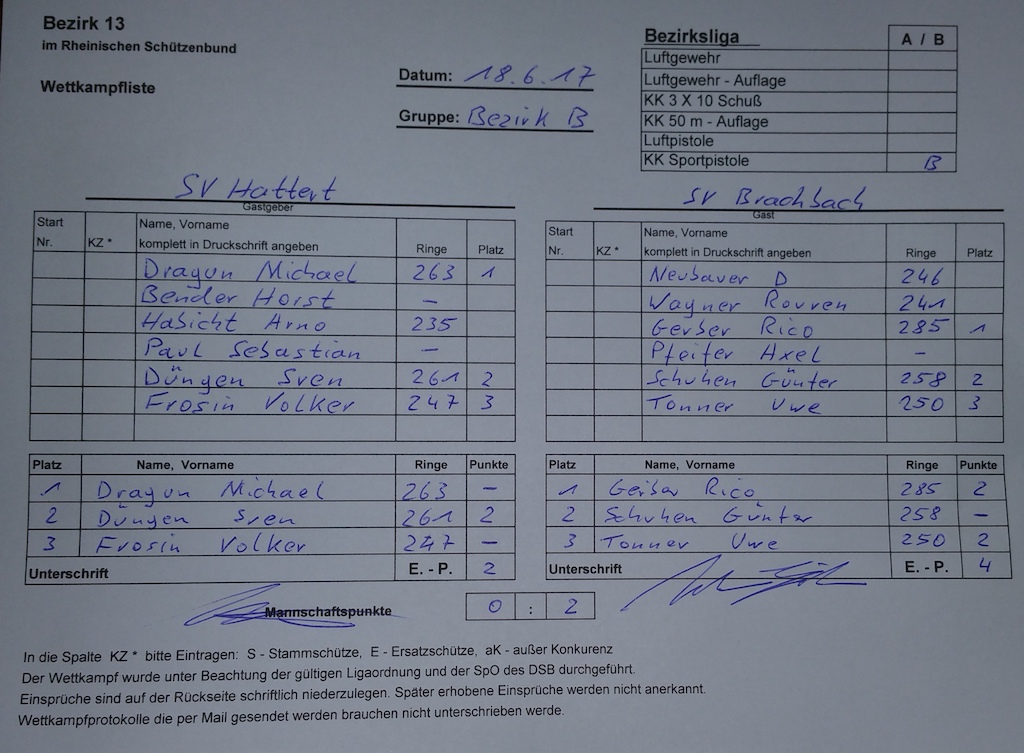 Bezirk 13
im Rheinischen Schützenbund
Wettkampfliste
Datum: 18.6.17
Gruppe: Bezirk B
Bezirksliga A / B
Luftgewehr
Luftgewehr - Auflage
KK 3 X 10 Schuß
KK 50 m - Auflage
Luftpistole
KK Sportpistole B
SV Hattert
Gastgeber
Start Nr. KZ * Name, Vorname komplett in Druckschrift angeben Ringe Platz
Dragun Michael 263 1
Bender Horst –
Habicht Arno 235
Paul Sebastian –
Düngen Sven 261 2
Frosin Volker 247 3
SV Brachbach
Gast
Start Nr. KZ * Name, Vorname komplett in Druckschrift angeben Ringe Platz
Neubauer D 246
Wagner Rouven 241
Gerber Rico 285 1
Pfeifer Axel –
Schuhen Günter 258 2
Tonner Uwe 250 3
Platz Name, Vorname Ringe Punkte
1 Dragun Michael 263 –
2 Düngen Sven 261 2
3 Frosin Volker 247 –
Unterschrift E. - P. 2
Platz Name, Vorname Ringe Punkte
1 Gerber Rico 285 2
2 Schuhen Günter 258 –
3 Tonner Uwe 250 2
Unterschrift E. - P. 4
Mannschaftspunkte 0 : 2
In die Spalte KZ * bitte Eintragen: S - Stammschütze, E - Ersatzschütze, aK - außer Konkurenz
Der Wettkampf wurde unter Beachtung der gültigen Ligaordnung und der SpO des DSB durchgeführt.
Einsprüche sind auf der Rückseite schriftlich niederzulegen. Später erhobene Einsprüche werden nicht anerkannt.
Wettkampfprotokolle die per Mail gesendet werden brauchen nicht unterschrieben werde.